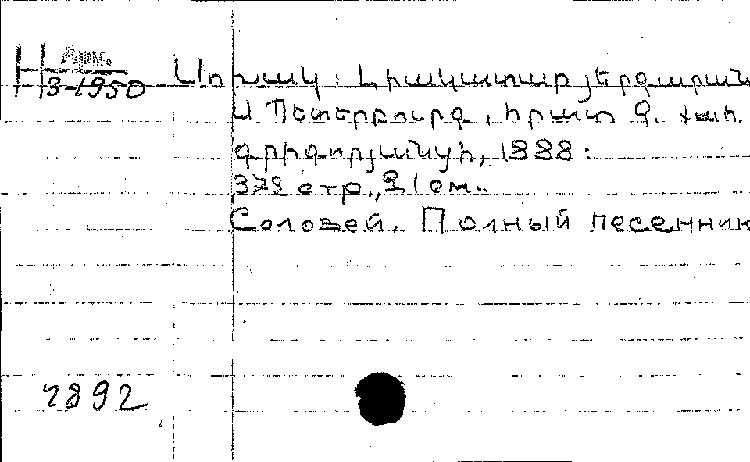 Арм.
3-1950
Սոխակ: Լիակատար երգարան
Ս Պետերբուրգ, հրատ Գ. Քահ.
գրիգորյանցի, 1888:
328 стр., 21 см.
Соловей. Полный песенник
2892